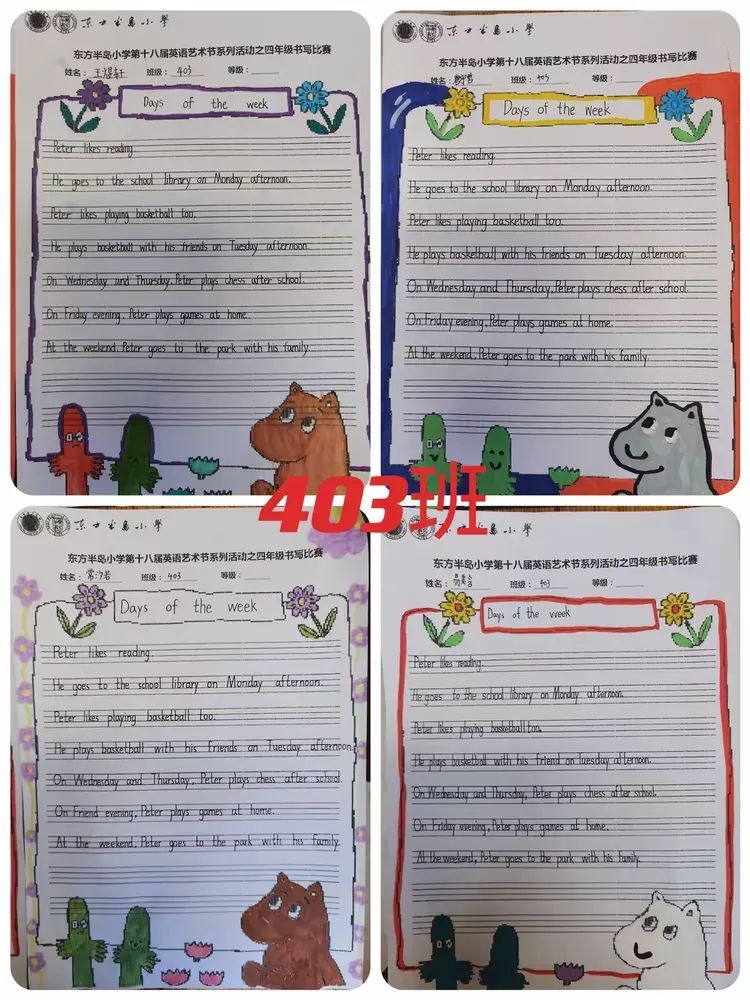 东方半岛小学
东方半岛小学第十八届英语艺术节系列活动之四年级书写比赛
姓名：王煜轩 班级：403 等级：
Days of the week
Peter likes reading.
He goes to the school library on Monday afternoon.
Peter likes playing basketball too.
He plays basketball with his friends on Tuesday afternoon.
On Wednesday and Thursday, Peter plays chess after school.
On Friday evening, Peter plays games at home.
At the weekend, Peter goes to the park with his family.
东方半岛小学
东方半岛小学第十八届英语艺术节系列活动之四年级书写比赛
姓名： 班级：403 等级：
Days of the week
Peter likes reading.
He goes to the school library on Monday afternoon.
Peter likes playing basketball too.
He plays basketball with his friends on Tuesday afternoon.
On Wednesday and Thursday, Peter plays chess after school.
On Friday evening, Peter plays games at home.
At the weekend, Peter goes to the park with his family.
403班
东方半岛小学
东方半岛小学第十八届英语艺术节系列活动之四年级书写比赛
姓名：常汐若 班级：403 等级：
Days of the week
Peter likes reading.
He goes to the school library on Monday afternoon.
Peter likes playing basketball too.
He plays basketball with his friends on Tuesday afternoon.
On Wednesday and Thursday, Peter plays chess after school.
On Friend evening, Peter plays games at home.
At the weekend, Peter goes to the park with his family.
东方半岛小学
东方半岛小学第十八届英语艺术节系列活动之四年级书写比赛
姓名： 班级：403 等级：
Days of the week
Peter likes reading.
He goes to the school library on Monday afternoon.
Peter likes playing basketball too.
He plays basketball with his friend on Tuesday afternoon.
On Wednesday and Thursday, Peter plays chess after school.
On Friday evening, Peter plays games at home.
At the weekend, Peter goes to the park with his family.